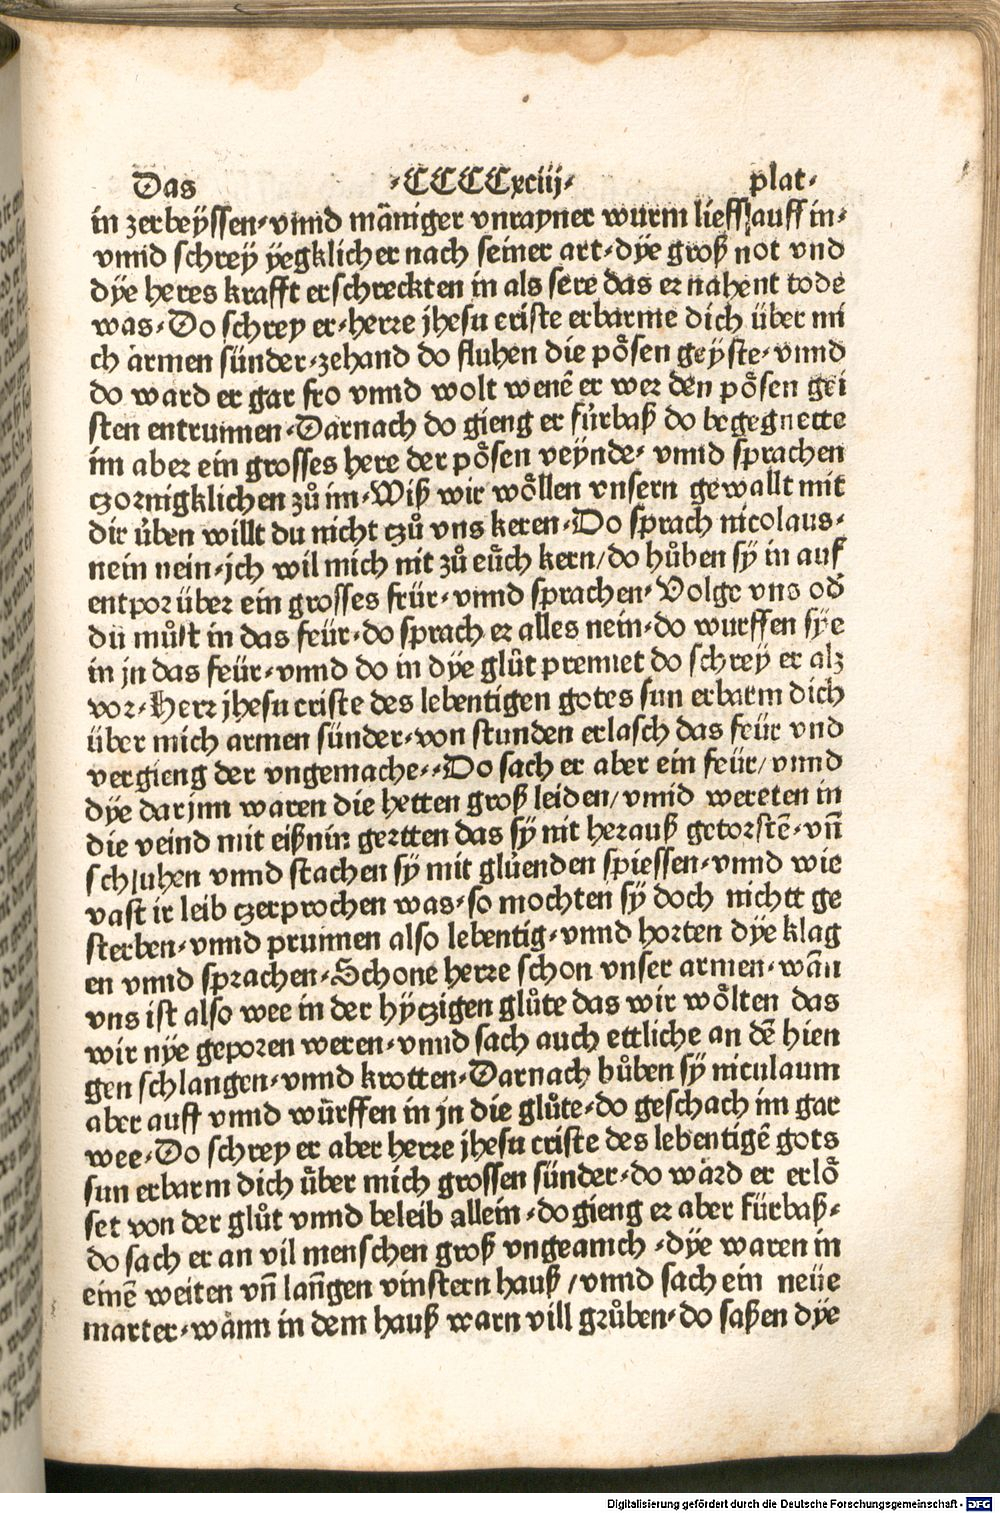 Das ·CCCCxciij· plat·
in zerbeÿssen·vnnd mäniger vnrayner wurm lieff auff in·
vnnd schrey ÿegklicher nach seiner art·dÿe groß not vnd
dÿe heres krafft erschreckten in als sere das er nahent tode
was·Do schrey er·herre jhesu criste erbarme dich über mi
ch armen sünder·zehand do fluhen die pösen geÿste·vnnd
do ward er gar fro vnnd wolt wenē er wer den pösen gei
sten entrunnen·Darnach do gieng er fürbaß do begegnette
im aber ein grosses here der pösen veÿnde· vnnd sprachen
czornigklichen zů im·Wiß wir wöllen vnsern gewallt mit
dir üben willt du nicht czů vns keren·Do sprach nicolaus·
nein nein·ich wil mich nit zů eüch kern/do hůben sÿ in auf
entpor über ein grosses feür·vnnd sprachen·Volge vns od̕
du můst in das feür·do sprach er alles nein·do wurffen sÿe
in jn das feür·vnnd do in dÿe glůt prennet do schreÿ er alz
vor·Herr jhesu criste des lebentigen gotes sun erbarm dich
über mich armen sünder·von stunden erlasch das feür vnd
vergieng der vngemache··Do sach er aber ein feür/vnnd
dÿe darjnn waren die hetten groß leiden/vnnd wereten in
die veind mit eißnin gertten das sÿ nit herauß getorstē·vn̄
schluhen vnnd stachen sÿ mit glůenden spiessen·vnnd wie
vast ir leib czerprochen was·so mochten sÿ doch nichtt ge
sterben·vnnd prunnen also lebentig·vnnd horten dÿe klag
en vnnd sprachen·Schone herre schon vnser armen·wān
vns ist also wee in der hÿczigen glůte das wir wölten das
wir nÿe geporen weren·vnnd sach auch ettliche an dē hien
gen schlangen·vnnd krotten·Darnach hůben sÿ niculaum
aber auff vnnd würffen in jn die glůte·do geschach im gar
wee·Do schrey er aber herre jhesu criste des lebentigē gots
sun erbarm dich über mich grossen sünder·do ward er erlö
set von der glůt vnnd beleib allein·do gieng er aber fürbaß·
do sach er an vil menschen groß vngeamch ·dÿe waren in
einē weiten vn̄ lan̄gen vinstern hauß /vnnd sach ein neüe
marter·wann in dem hauß warn vill grůben·do saßen dÿe
Digitalisierung gefördert durch die Deutsche Forschungsgemeinschaft - DFG